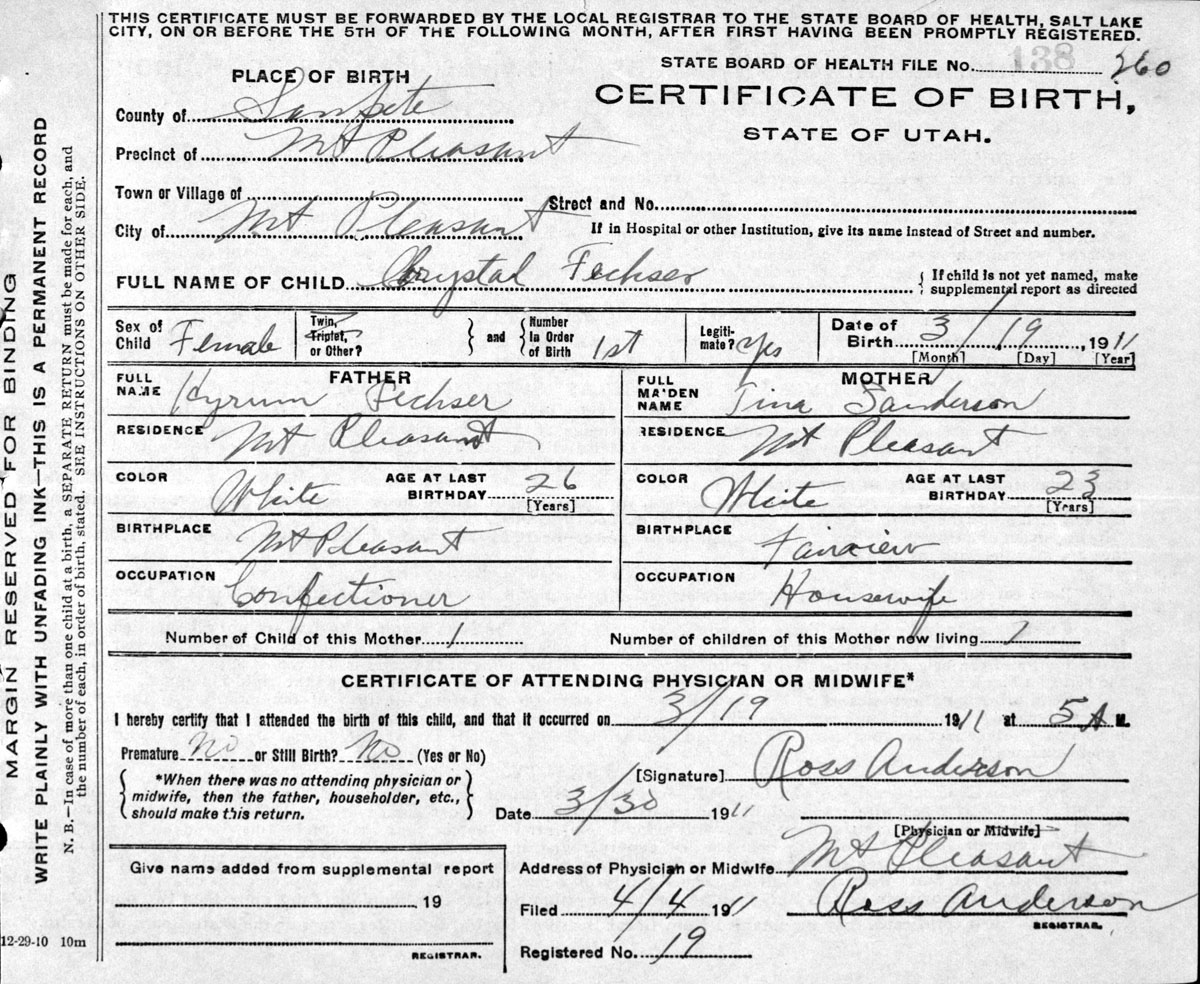 THIS CERTIFICATE MUST BE FORWARDED BY THE LOCAL REGISTRAR TO THE STATE BOARD OF HEALTH, SALT LAKE
CITY, ON OR BEFORE THE 5TH OF THE FOLLOWING MONTH, AFTER FIRST HAVING BEEN PROMPTLY REGISTERED.
STATE BOARD OF HEALTH FILE No. 138 260
PLACE OF BIRTH
CERTIFICATE OF BIRTH,
STATE OF UTAH.
County of Sanpete
Precinct of Mt Pleasant
Town or Village of
Street and No.
City of Mt Pleasant
If in Hospital or other Institution, give its name instead of Street and number.
FULL NAME OF CHILD Crystal Fechser
{ If child is not yet named, make
supplemental report as directed
Sex of Child Female
Twin, Triplet, or Other? } and { Number In Order of Birth 1st
Legiti-mate? Yes
Date of Birth 3/19, 1911
[Month] [Day] [Year]
FATHER
FULL NAME Hyrum Fechser
MOTHER
FULL MAIDEN NAME Tina Sanderson
RESIDENCE Mt Pleasant
RESIDENCE Mt Pleasant
COLOR White AGE AT LAST BIRTHDAY 26 [Years]
COLOR White AGE AT LAST BIRTHDAY 23 [Years]
BIRTHPLACE Mt Pleasant
BIRTHPLACE Fairview
OCCUPATION Confectioner
OCCUPATION Housewife
Number of Child of this Mother 1
Number of children of this Mother now living
CERTIFICATE OF ATTENDING PHYSICIAN OR MIDWIFE*
I hereby certify that I attended the birth of this child, and that it occurred on 3/19 1911 at 5 A M.
Premature No or Still Birth? No (Yes or No)
*When there was no attending physician or
midwife, then the father, householder, etc.,
should make this return.
[Signature] Ross Anderson
Date 3/30 1911
[Physician or Midwife]
Give name added from supplemental report
19
REGISTRAR.
Address of Physician or Midwife Mt Pleasant
Filed 4/4 1911 Ross Anderson
REGISTRAR.
Registered No. 19
12-29-10 10m
MARGIN RESERVED FOR BINDING
WRITE PLAINLY WITH UNFADING INK—THIS IS A PERMANENT RECORD
N. B.—In case of more than one child at a birth, a SEPARATE RETURN must be made for each, and
the number of each, in order of birth, stated. SEE INSTRUCTIONS ON OTHER SIDE.